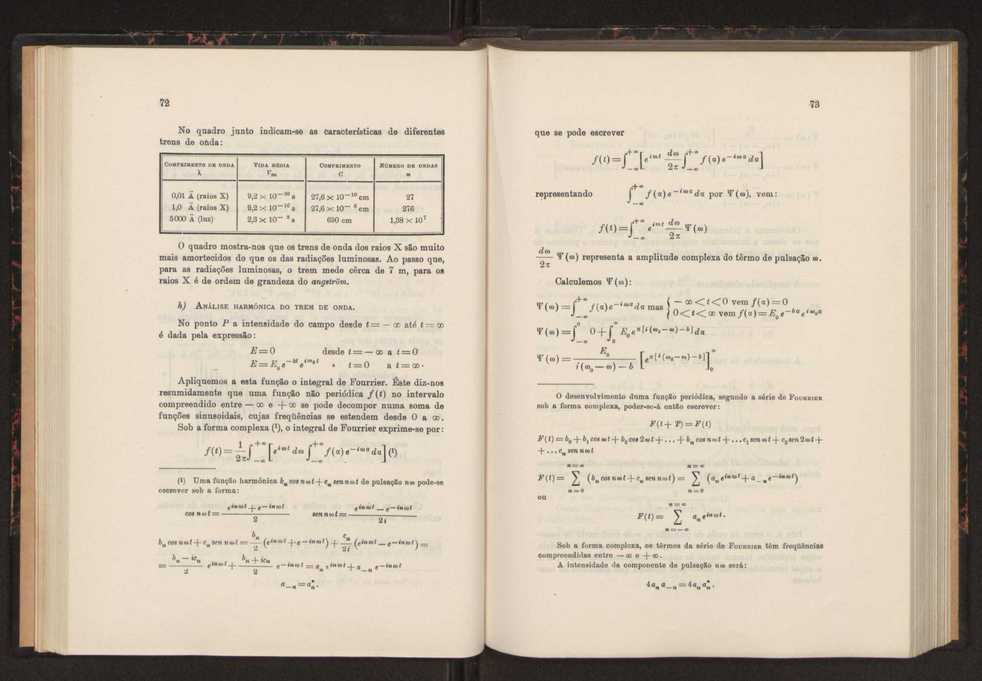 72
No quadro junto indicam-se as características de diferentes
trens de onda:
COMPRIMENTO DE ONDA λ | VIDA MÉDIA τm | COMPRIMENTO C | NÚMERO DE ONDAS n
0,01 Å (raios X) | 9,2 × 10⁻²⁰ s | 27,6 × 10⁻¹⁰ cm | 27
1,0 Å (raios X) | 9,2 × 10⁻¹⁶ s | 27,6 × 10⁻⁶ cm | 276
5000 Å (luz) | 2,3 × 10⁻⁸ s | 690 cm | 1,38 × 10⁷
O quadro mostra-nos que os trens de onda dos raios X são muito
mais amortecidos do que os das radiações luminosas. Ao passo que,
para as radiações luminosas, o trem mede cêrca de 7 m, para os
raios X é de ordem de grandeza do angström.
h) ANÁLISE HARMÓNICA DO TREM DE ONDA.
No ponto P a intensidade do campo desde t = − ∞ até t = ∞
é dada pela expressão:
E = 0 desde t = − ∞ a t = 0
E = E₀ e^{−bt} e^{iω₀t} » t = 0 a t = ∞.
Apliquemos a esta função o integral de Fourrier. Êste diz-nos
resumidamente que uma função não periódica f(t) no intervalo
compreendido entre − ∞ e + ∞ se pode decompor numa soma de
funções sinusoidais, cujas freqüências se estendem desde 0 a ∞.
Sob a forma complexa (¹), o integral de Fourrier exprime-se por:
f(t) = 1/2π ∫_{−∞}^{+∞} [e^{iωt} dω ∫_{−∞}^{+∞} f(α) e^{−iωα} dα] (¹)
(¹) Uma função harmónica bₙ cos nωt + cₙ sen nωt de pulsação nω pode-se
escrever sob a forma:
cos nωt = (e^{inωt} + e^{−inωt})/2 sen nωt = (e^{inωt} − e^{−inωt})/2i
bₙ cos nωt + cₙ sen nωt = bₙ/2 (e^{inωt} + e^{−inωt}) + cₙ/2i (e^{inωt} − e^{−inωt}) =
= (bₙ − icₙ)/2 e^{inωt} + (bₙ + icₙ)/2 e^{−inωt} = aₙ e^{inωt} + a₋ₙ e^{−inωt}
a₋ₙ = aₙ*.
73
que se pode escrever
f(t) = ∫_{−∞}^{+∞} [e^{iωt} dω/2π ∫_{−∞}^{+∞} f(α) e^{−iωα} dα]
representando ∫_{−∞}^{+∞} f(α) e^{−iωα} dα por Ψ(ω), vem:
f(t) = ∫_{−∞}^{+∞} e^{iωt} dω/2π Ψ(ω)
dω/2π Ψ(ω) representa a amplitude complexa do têrmo de pulsação ω.
Calculemos Ψ(ω):
Ψ(ω) = ∫_{−∞}^{+∞} f(α) e^{−iωα} dα mas { − ∞ < t < 0 vem f(α) = 0
0 < t < ∞ vem f(α) = E₀ e^{−bα} e^{iω₀α}
Ψ(ω) = ∫_{−∞}^{0} 0 + ∫_{0}^{∞} E₀ e^{α[i(ω₀−ω)−b]} dα
Ψ(ω) = E₀/(i(ω₀ − ω) − b) [e^{α[i(ω₀−ω)−b]}]_{0}^{∞}
O desenvolvimento duma função periódica, segundo a série de FOURRIER
sob a forma complexa, poder-se-á então escrever:
F(t + T) = F(t)
F(t) = b₀ + b₁ cos ωt + b₂ cos 2ωt + ... + bₙ cos nωt + ... c₁ sen ωt + c₂ sen 2ωt +
+ ... cₙ sen nωt
F(t) = Σ_{n=0}^{n=∞} (bₙ cos nωt + cₙ sen nωt) = Σ_{n=0}^{n=∞} (aₙ e^{inωt} + a₋ₙ e^{−inωt})
ou
F(t) = Σ_{n=−∞}^{n=∞} aₙ e^{inωt}.
Sob a forma complexa, os têrmos da série de FOURRIER têm freqüências
compreendidas entre − ∞ e + ∞.
A intensidade da componente de pulsação nω será:
4aₙ a₋ₙ = 4aₙ aₙ*.